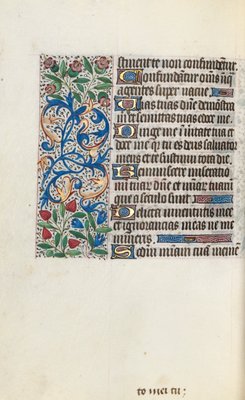 stinente non confundetur.
Confundentur oms iniq
agentes super vacue.
Uias tuas dne demostra
m et semitas tuas edoce me.
Dirige me i uitate tua et
doce me q tu es deus saluator
meus et te sustinui tota die.
Reminiscere miseratio
nu tuar dne et miar tuar
que a seculo sunt.
Delicta iuuentutis mee
et ignorancias meas ne me
mineris.
Scdm miam tua meme
to mei tu: